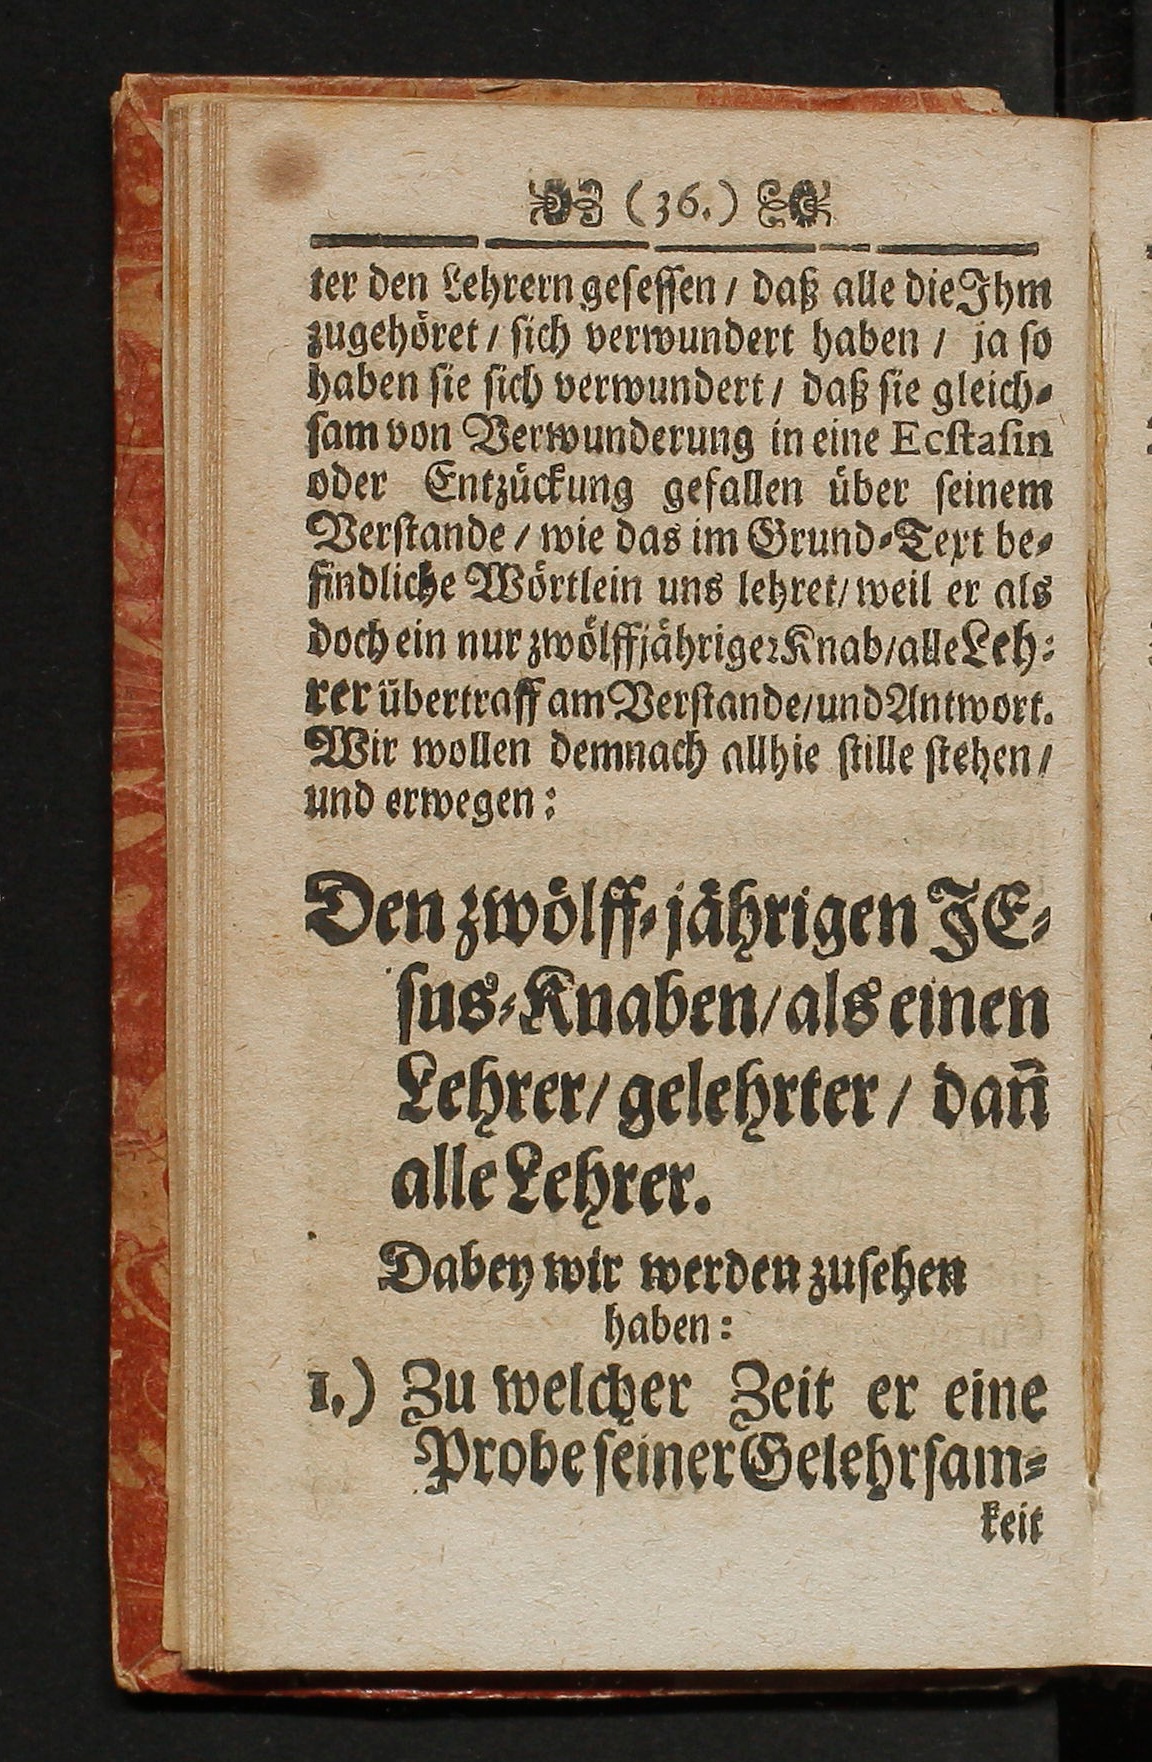 (36.)
ter den Lehrern gesessen / daß alle die Jhm
zugehöret / sich verwundert haben / ja so
haben sie sich verwundert / daß sie gleich-
sam von Verwunderung in eine Ecstasin
oder Entzückung gefallen über seinem
Verstande / wie das im Grund-Text be-
findliche Wörtlein uns lehret / weil er als
doch ein nur zwölffjähriger Knab / alle Leh-
rer übertraff am Verstande / und Antwort.
Wir wollen demnach allhie stille stehen /
und erwegen:
Den zwölff-jährigen JE-
sus-Knaben / als einen
Lehrer / gelehrter / dañ
alle Lehrer.
Dabey wir werden zusehen
haben:
1.) Zu welcher Zeit er eine
Probe seiner Gelehrsam-
keit